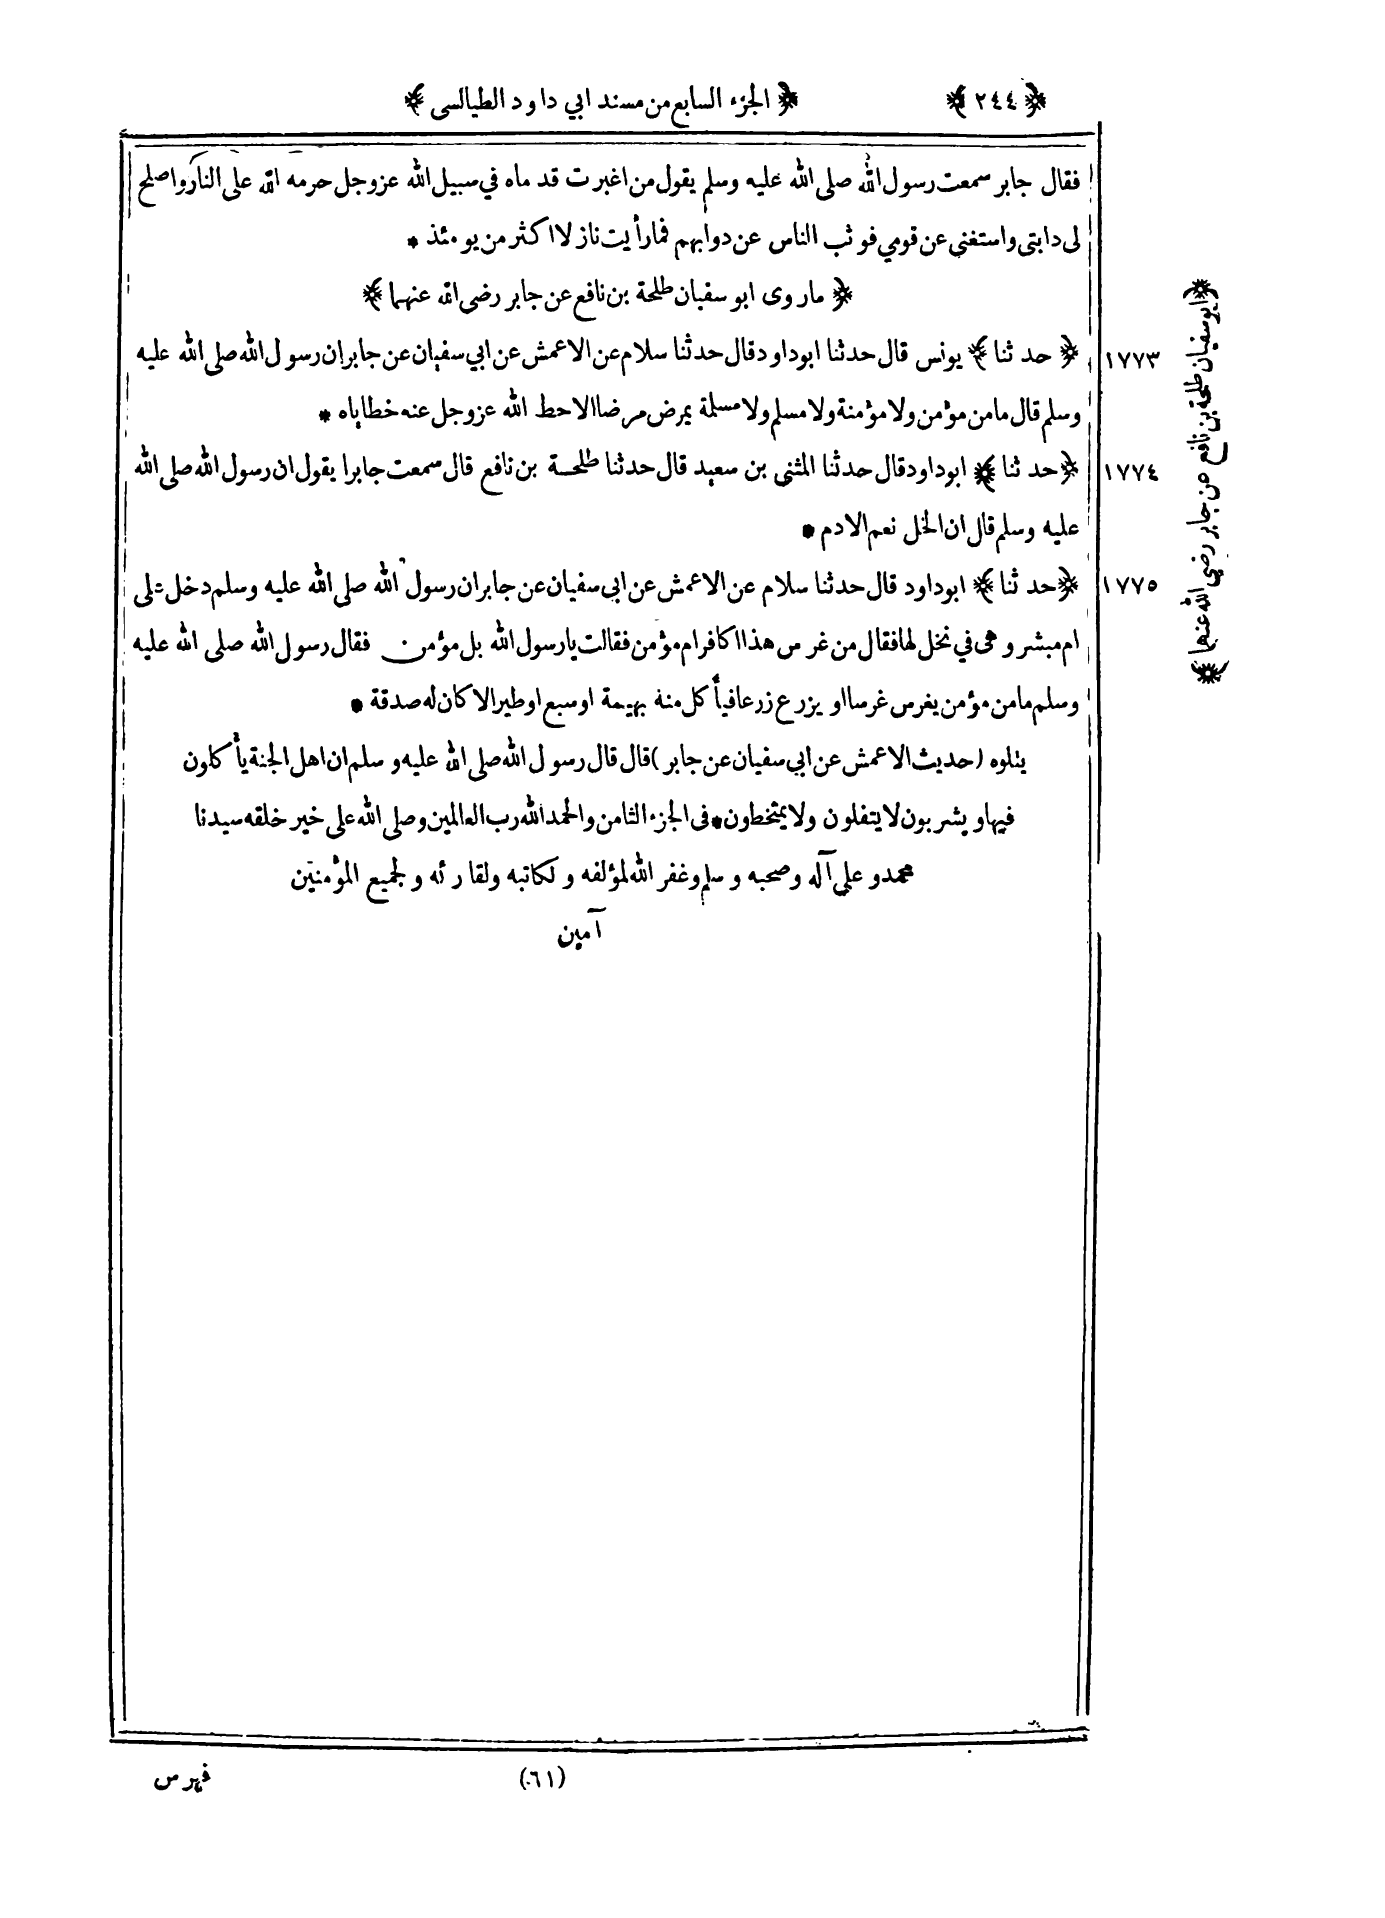 ﴿ ٢٤٤ ﴾
﴿ الجزء السابع من مسند ابي داود الطيالسى ﴾
فقال جابر سمعت رسول الله صلى الله عليه وسلم يقول من اغبرت قدماه في سبيل الله عزوجل حرمه الله على النار واصلح
لى دابتى واستغنى عن قومي فوثب الناس عن دوابهم فمارأيت نازلا اكثر من يومئذ *
﴿ ماروى ابو سفيان طلحة بن نافع عن جابر رضى الله عنهما ﴾
١٧٧٣ ﴿ حدثنا ﴾ يونس قال حدثنا ابوداود قال حدثنا سلام عن الاعمش عن ابي سفيان عن جابر ان رسول الله صلى الله عليه
وسلم قال مامن مؤمن ولا مؤمنة ولا مسلم ولا مسلمة يمرض مرضا الاحط الله عزوجل عنه خطاياه *
١٧٧٤ ﴿ حدثنا ﴾ ابوداود قال حدثنا المثنى بن سعيد قال حدثنا طلحة بن نافع قال سمعت جابرا يقول ان رسول الله صلى الله
عليه وسلم قال ان الخل نعم الادم *
١٧٧٥ ﴿ حدثنا ﴾ ابوداود قال حدثنا سلام عن الاعمش عن ابى سفيان عن جابر ان رسول الله صلى الله عليه وسلم دخل على
ام مبشر وهى في نخل لها فقال من غرس هذا اكافر ام مؤمن فقالت يارسول الله بل مؤمن فقال رسول الله صلى الله عليه
وسلم مامن مؤمن يغرس غرسا او يزرع زرعا فيأكل منه بهيمة او سبع او طير الا كان له صدقة *
يتلوه (حديث الاعمش عن ابي سفيان عن جابر) قال قال رسول الله صلى الله عليه وسلم ان اهل الجنة يأكلون
فيها ويشربون لا يتفلون ولا يمتخطون * فى الجزء الثامن والحمد الله رب العالمين وصلى الله على خير خلقه سيدنا
محمد وعلى آله وصحبه وسلم وغفر الله لمؤلفه ولكاتبه ولقارئه ولجميع المؤمنين
آمين
﴿ابو سفيان طلحة بن نافع عن جابر رضي الله عنهما﴾
(٦١)
فهرس